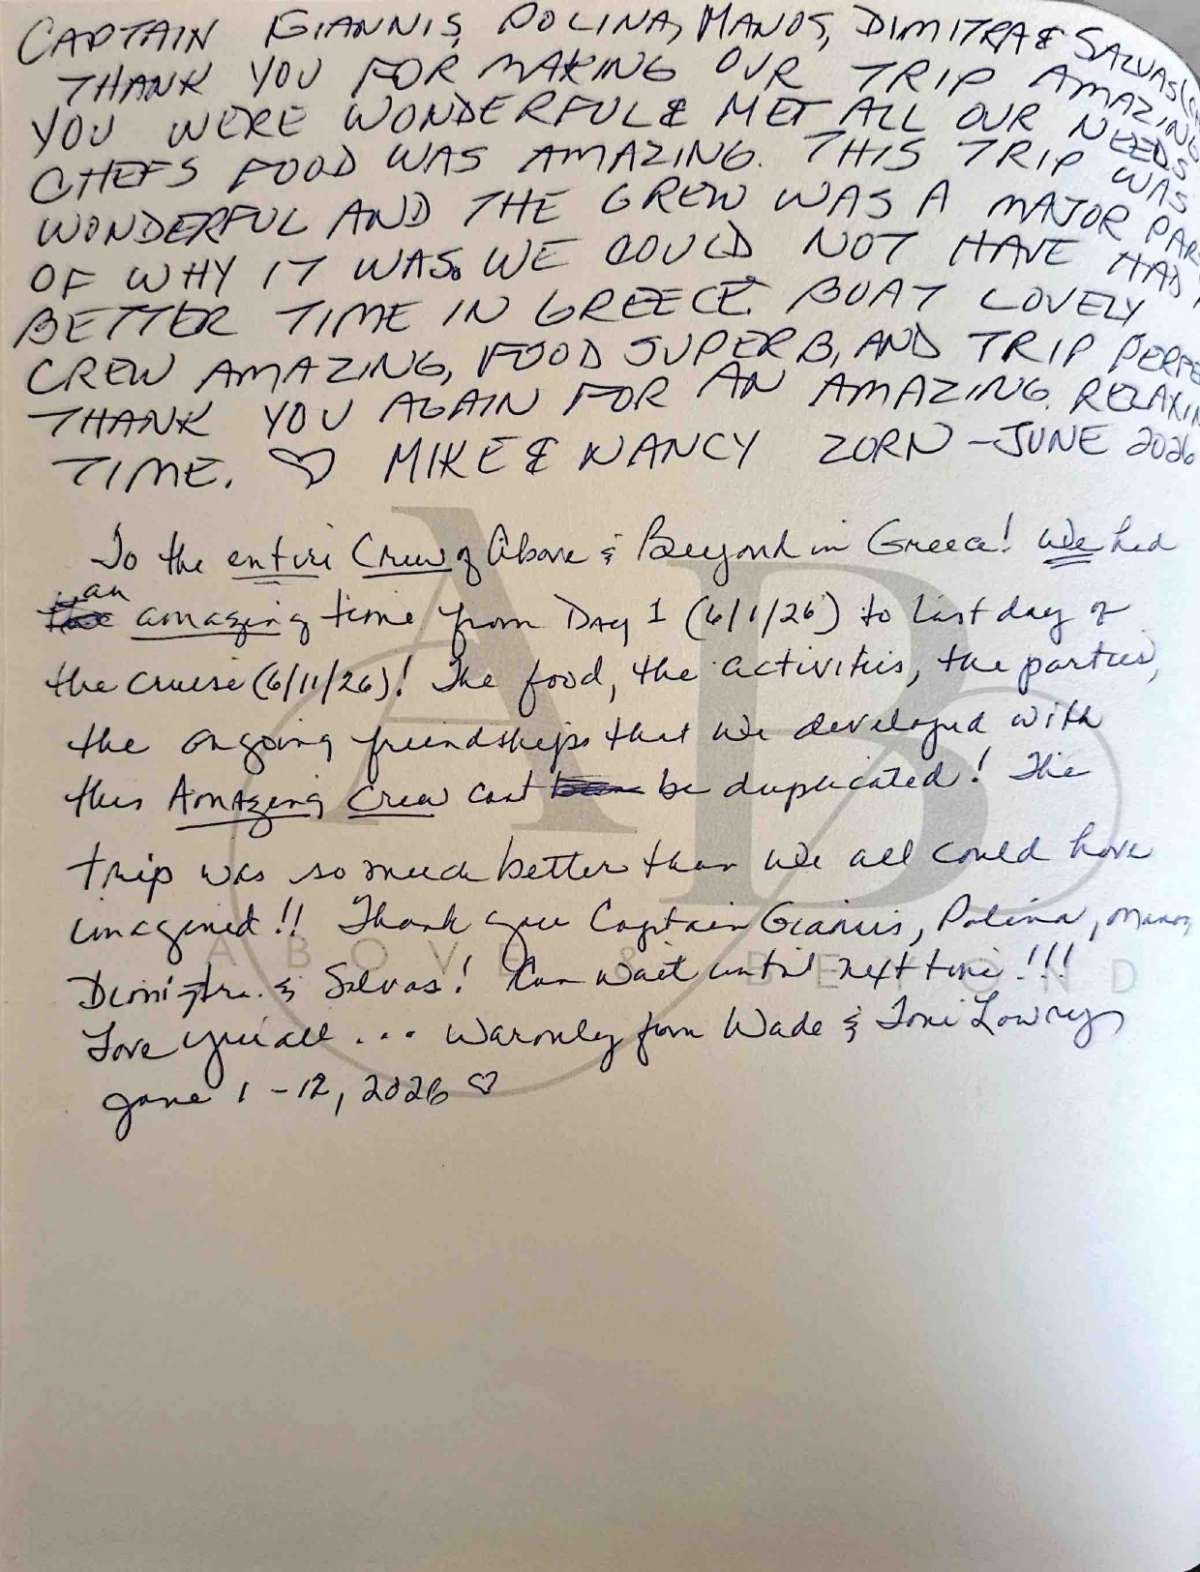 CAPTAIN GIANNIS, POLINA, MANOS, DIMITRA & SALVAS
THANK YOU FOR MAKING OUR TRIP AMAZING
YOU WERE WONDERFUL & MET ALL OUR NEEDS
CHEFS FOOD WAS AMAZING. THIS TRIP WAS
WONDERFUL AND THE CREW WAS A MAJOR PAR
OF WHY IT WAS. WE COULD NOT HAVE HAD
BETTER TIME IN GREECE. BOAT LOVELY
CREW AMAZING, FOOD SUPERB, AND TRIP PERFE
THANK YOU AGAIN FOR AN AMAZING, RELAXIN
TIME. ♡ MIKE & NANCY ZORN - JUNE 2026
To the entire Crew of Above & Beyond in Greece! We had
an amazing time from Day 1 (6/1/26) to last day of
the cruise (6/11/26)! The food, the activities, the parties,
the ongoing friendships that we developed with
this Amazing Crew cant be duplicated! The
trip was so much better than we all could have
imagined!! Thank you Captain Gianiis, Polina, Manos,
Dimitra & Salvas! Can wait until next time!!!
Love you all ... Warmly from Wade & Toni Lowrey
June 1-12, 2026 ♡
AB
ABOVE & BEYOND